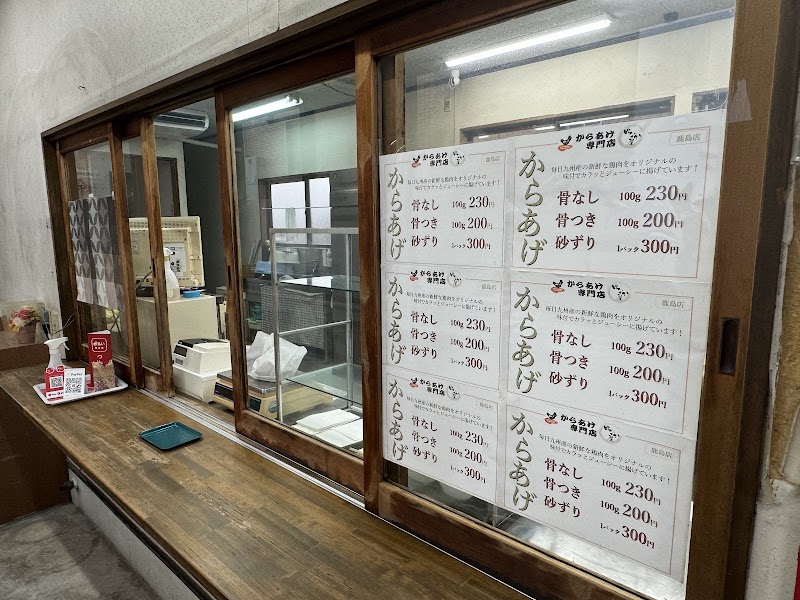 からあげ
専門店
鹿島店
からあげ
毎日九州産の新鮮な鶏肉をオリジナルの
味付でカラッとジューシーに揚げています!
骨なし 100g 230円
骨つき 100g 200円
砂ずり 1パック 300円
からあげ
専門店
鹿島店
からあげ
毎日九州産の新鮮な鶏肉をオリジナルの
味付でカラッとジューシーに揚げています!
骨なし 100g 230円
骨つき 100g 200円
砂ずり 1パック 300円
からあげ
専門店
鹿島店
からあげ
毎日九州産の新鮮な鶏肉をオリジナルの
味付でカラッとジューシーに揚げています!
骨なし 100g 230円
骨つき 100g 200円
砂ずり 1パック 300円
からあげ
専門店
鹿島店
からあげ
毎日九州産の新鮮な鶏肉をオリジナルの
味付でカラッとジューシーに揚げています!
骨なし 100g 230円
骨つき 100g 200円
砂ずり 1パック 300円
からあげ
専門店
鹿島店
からあげ
毎日九州産の新鮮な鶏肉をオリジナルの
味付でカラッとジューシーに揚げています!
骨なし 100g 230円
骨つき 100g 200円
砂ずり 1パック 300円
からあげ
専門店
鹿島店
からあげ
毎日九州産の新鮮な鶏肉をオリジナルの
味付でカラッとジューシーに揚げています!
骨なし 100g 230円
骨つき 100g 200円
砂ずり 1パック 300円
PayPay